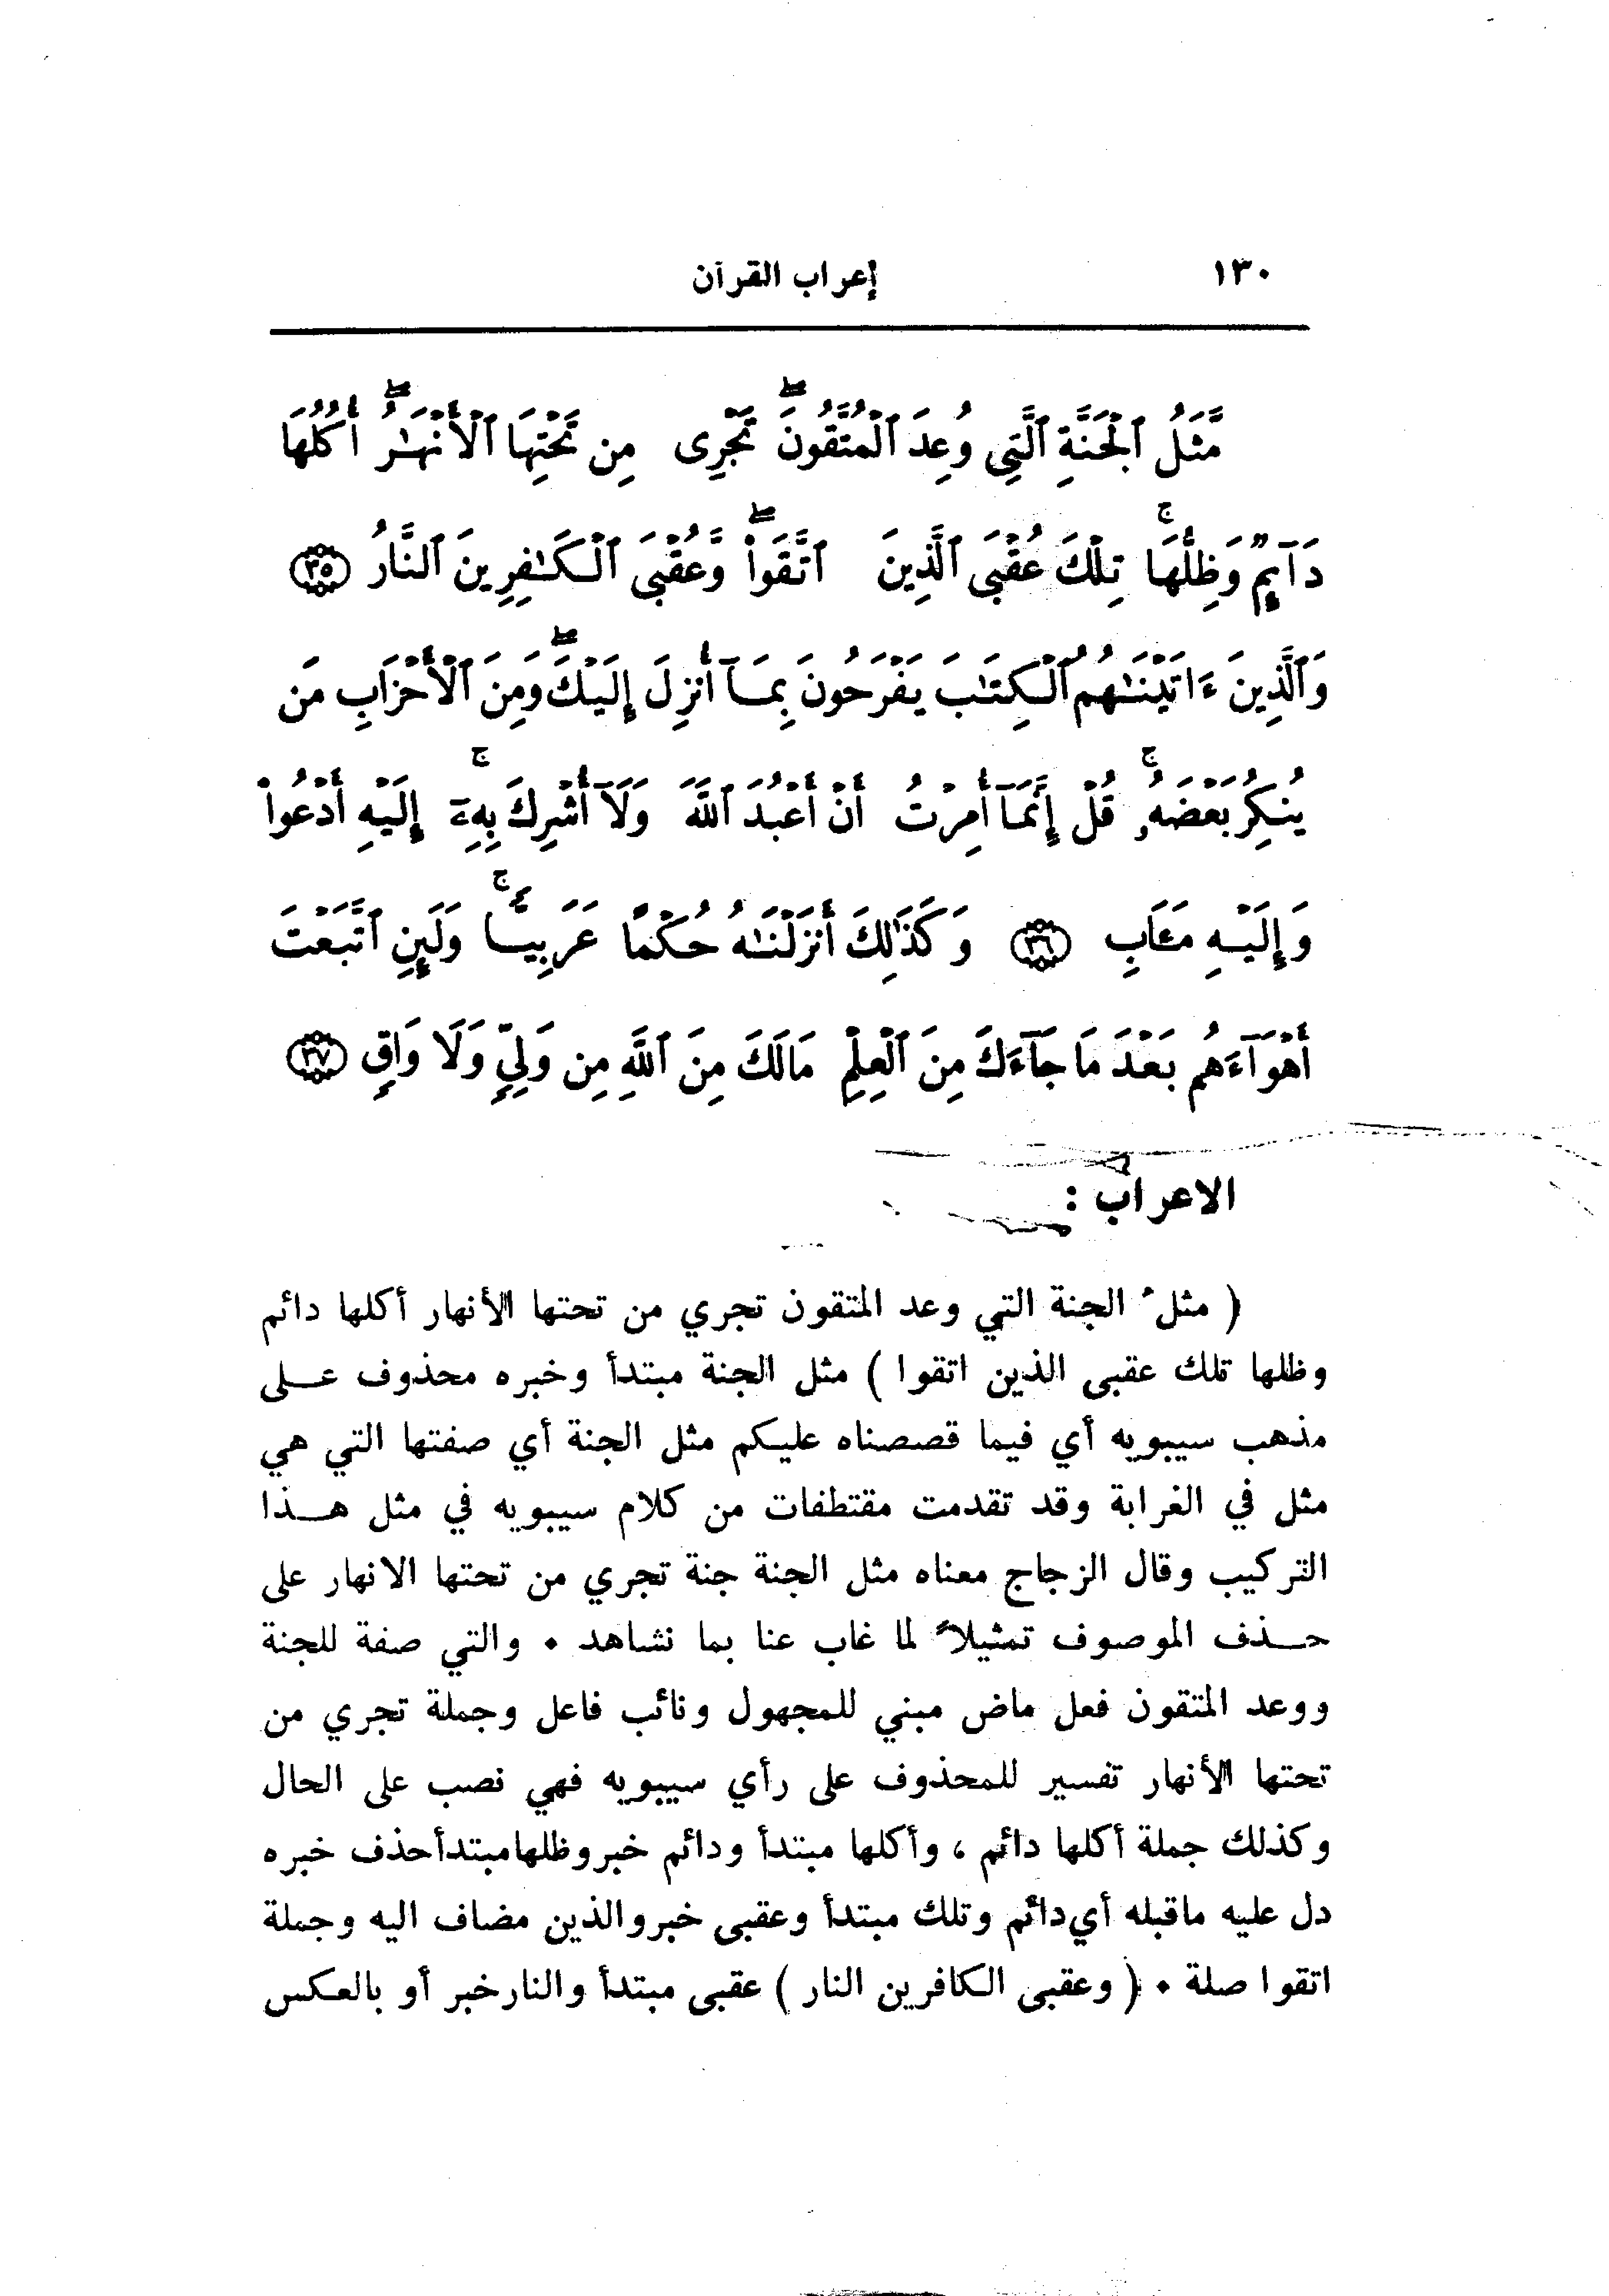 ١٣٠ إعراب القرآن
مَّثَلُ ٱلْجَنَّةِ ٱلَّتِي وُعِدَ ٱلْمُتَّقُونَۖ تَجْرِى مِن تَحْتِهَا ٱلْأَنْهَـٰرُۖ أُكُلُهَا
دَآئِمٌ وَظِلُّهَاۚ تِلْكَ عُقْبَى ٱلَّذِينَ ٱتَّقَوا۟ۖ وَّعُقْبَى ٱلْكَـٰفِرِينَ ٱلنَّارُ ٣٥
وَٱلَّذِينَ ءَاتَيْنَـٰهُمُ ٱلْكِتَـٰبَ يَفْرَحُونَ بِمَآ أُنزِلَ إِلَيْكَۖ وَمِنَ ٱلْأَحْزَابِ مَن
يُنكِرُ بَعْضَهُۥۚ قُلْ إِنَّمَآ أُمِرْتُ أَنْ أَعْبُدَ ٱللَّهَ وَلَآ أُشْرِكَ بِهِۦٓۚ إِلَيْهِ أَدْعُوا۟
وَإِلَيْهِ مَـَٔابِ ٣٦ وَكَذَٰلِكَ أَنزَلْنَـٰهُ حُكْمًا عَرَبِيًّاۚ وَلَئِنِ ٱتَّبَعْتَ
أَهْوَآءَهُم بَعْدَ مَا جَآءَكَ مِنَ ٱلْعِلْمِ مَالَكَ مِنَ ٱللَّهِ مِن وَلِيٍّ وَلَا وَاقٍ ٣٧
الاعراب :
( مثلُ الجنة التي وعد المتقون تجري من تحتها الأنهار أكلها دائم
وظلها تلك عقبى الذين اتقوا ) مثل الجنة مبتدأ وخبره محذوف علـى
مذهب سيبويه أي فيما قصصناه عليكم مثل الجنة أي صفتها التي هي
مثل في الغرابة وقد تقدمت مقتطفات من كلام سيبويه في مثل هـذا
التركيب وقال الزجاج معناه مثل الجنة جنة تجري من تحتها الانهار على
حـذف الموصوف تمثيلاً لما غاب عنا بما نشاهد ٠ والتي صفة للجنة
ووعد المتقون فعل ماض مبني للمجهول ونائب فاعل وجملة تجري من
تحتها الأنهار تفسير للمحذوف على رأي سيبويه فهي نصب على الحال
وكذلك جملة أكلها دائم ، وأكلها مبتدأ ودائم خبر وظلها مبتدأ حذف خبره
دل عليه ماقبله أي دائم وتلك مبتدأ وعقبى خبر والذين مضاف اليه وجملة
اتقوا صلة ٠ ( وعقبى الكافرين النار ) عقبى مبتدأ والنار خبر أو بالعكس